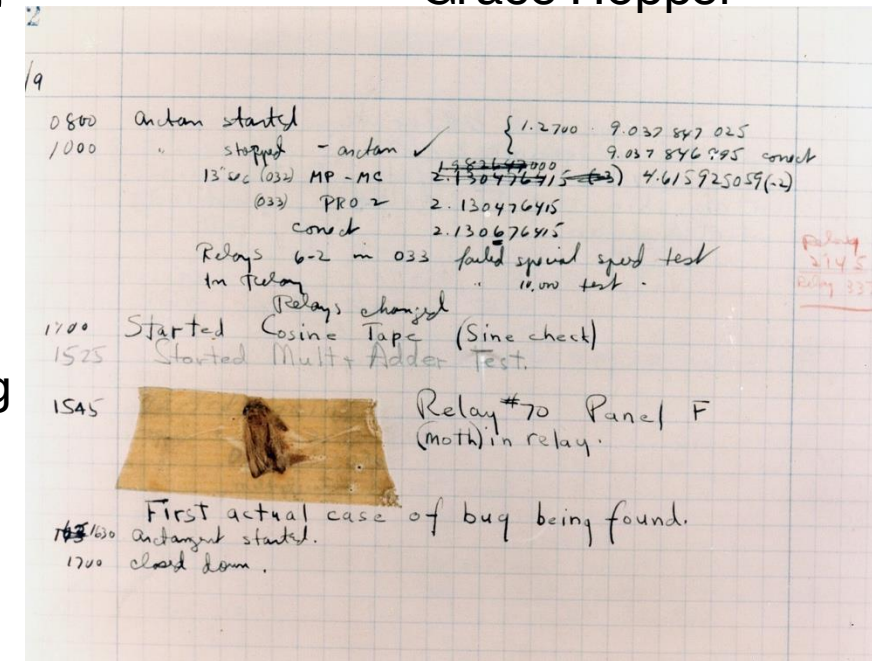 Grace Hopper
2
/9
0800 arctan started { 1.2700 9.037 847 025
1000 " stopped - arctan ✓ 9.037 846 995 correct
1.982647000
13" (032) MP - MC 2.130476415 (-3) 4.615925059(-2)
(033) PRO 2 2.130476415
correct 2.130676415
Relays 6-2 in 033 failed special speed test
In Relay " 10,000 test.
Relay
2145
Relay 337
Relays changed
1100 Started Cosine Tape (Sine check)
1525 Started Mult + Adder Test.
g
1545 Relay #70 Panel F
(moth) in relay.
First actual case of bug being found.
1630 arctangent started.
1700 closed down.